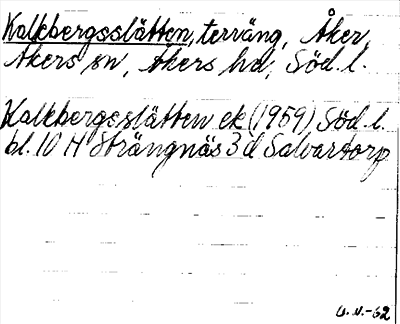 Kalkbergsslätten, terräng, Åker,
Åkers sn, Åkers hd, Söd. l.
Kalkbergsslätten ek (1959) Söd. l.
bl. 10 H Strängnäs 3 d Salvartorp
U.N.-62